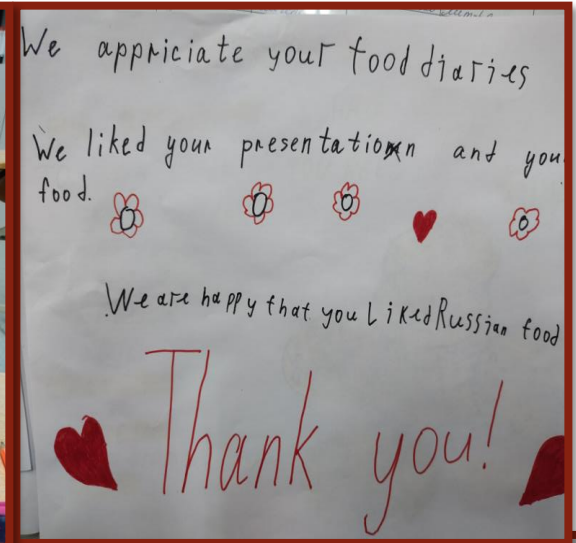 We appriciate your food diaries
We liked your presentation and you
food.
We are happy that you Liked Russian food
Thank you!